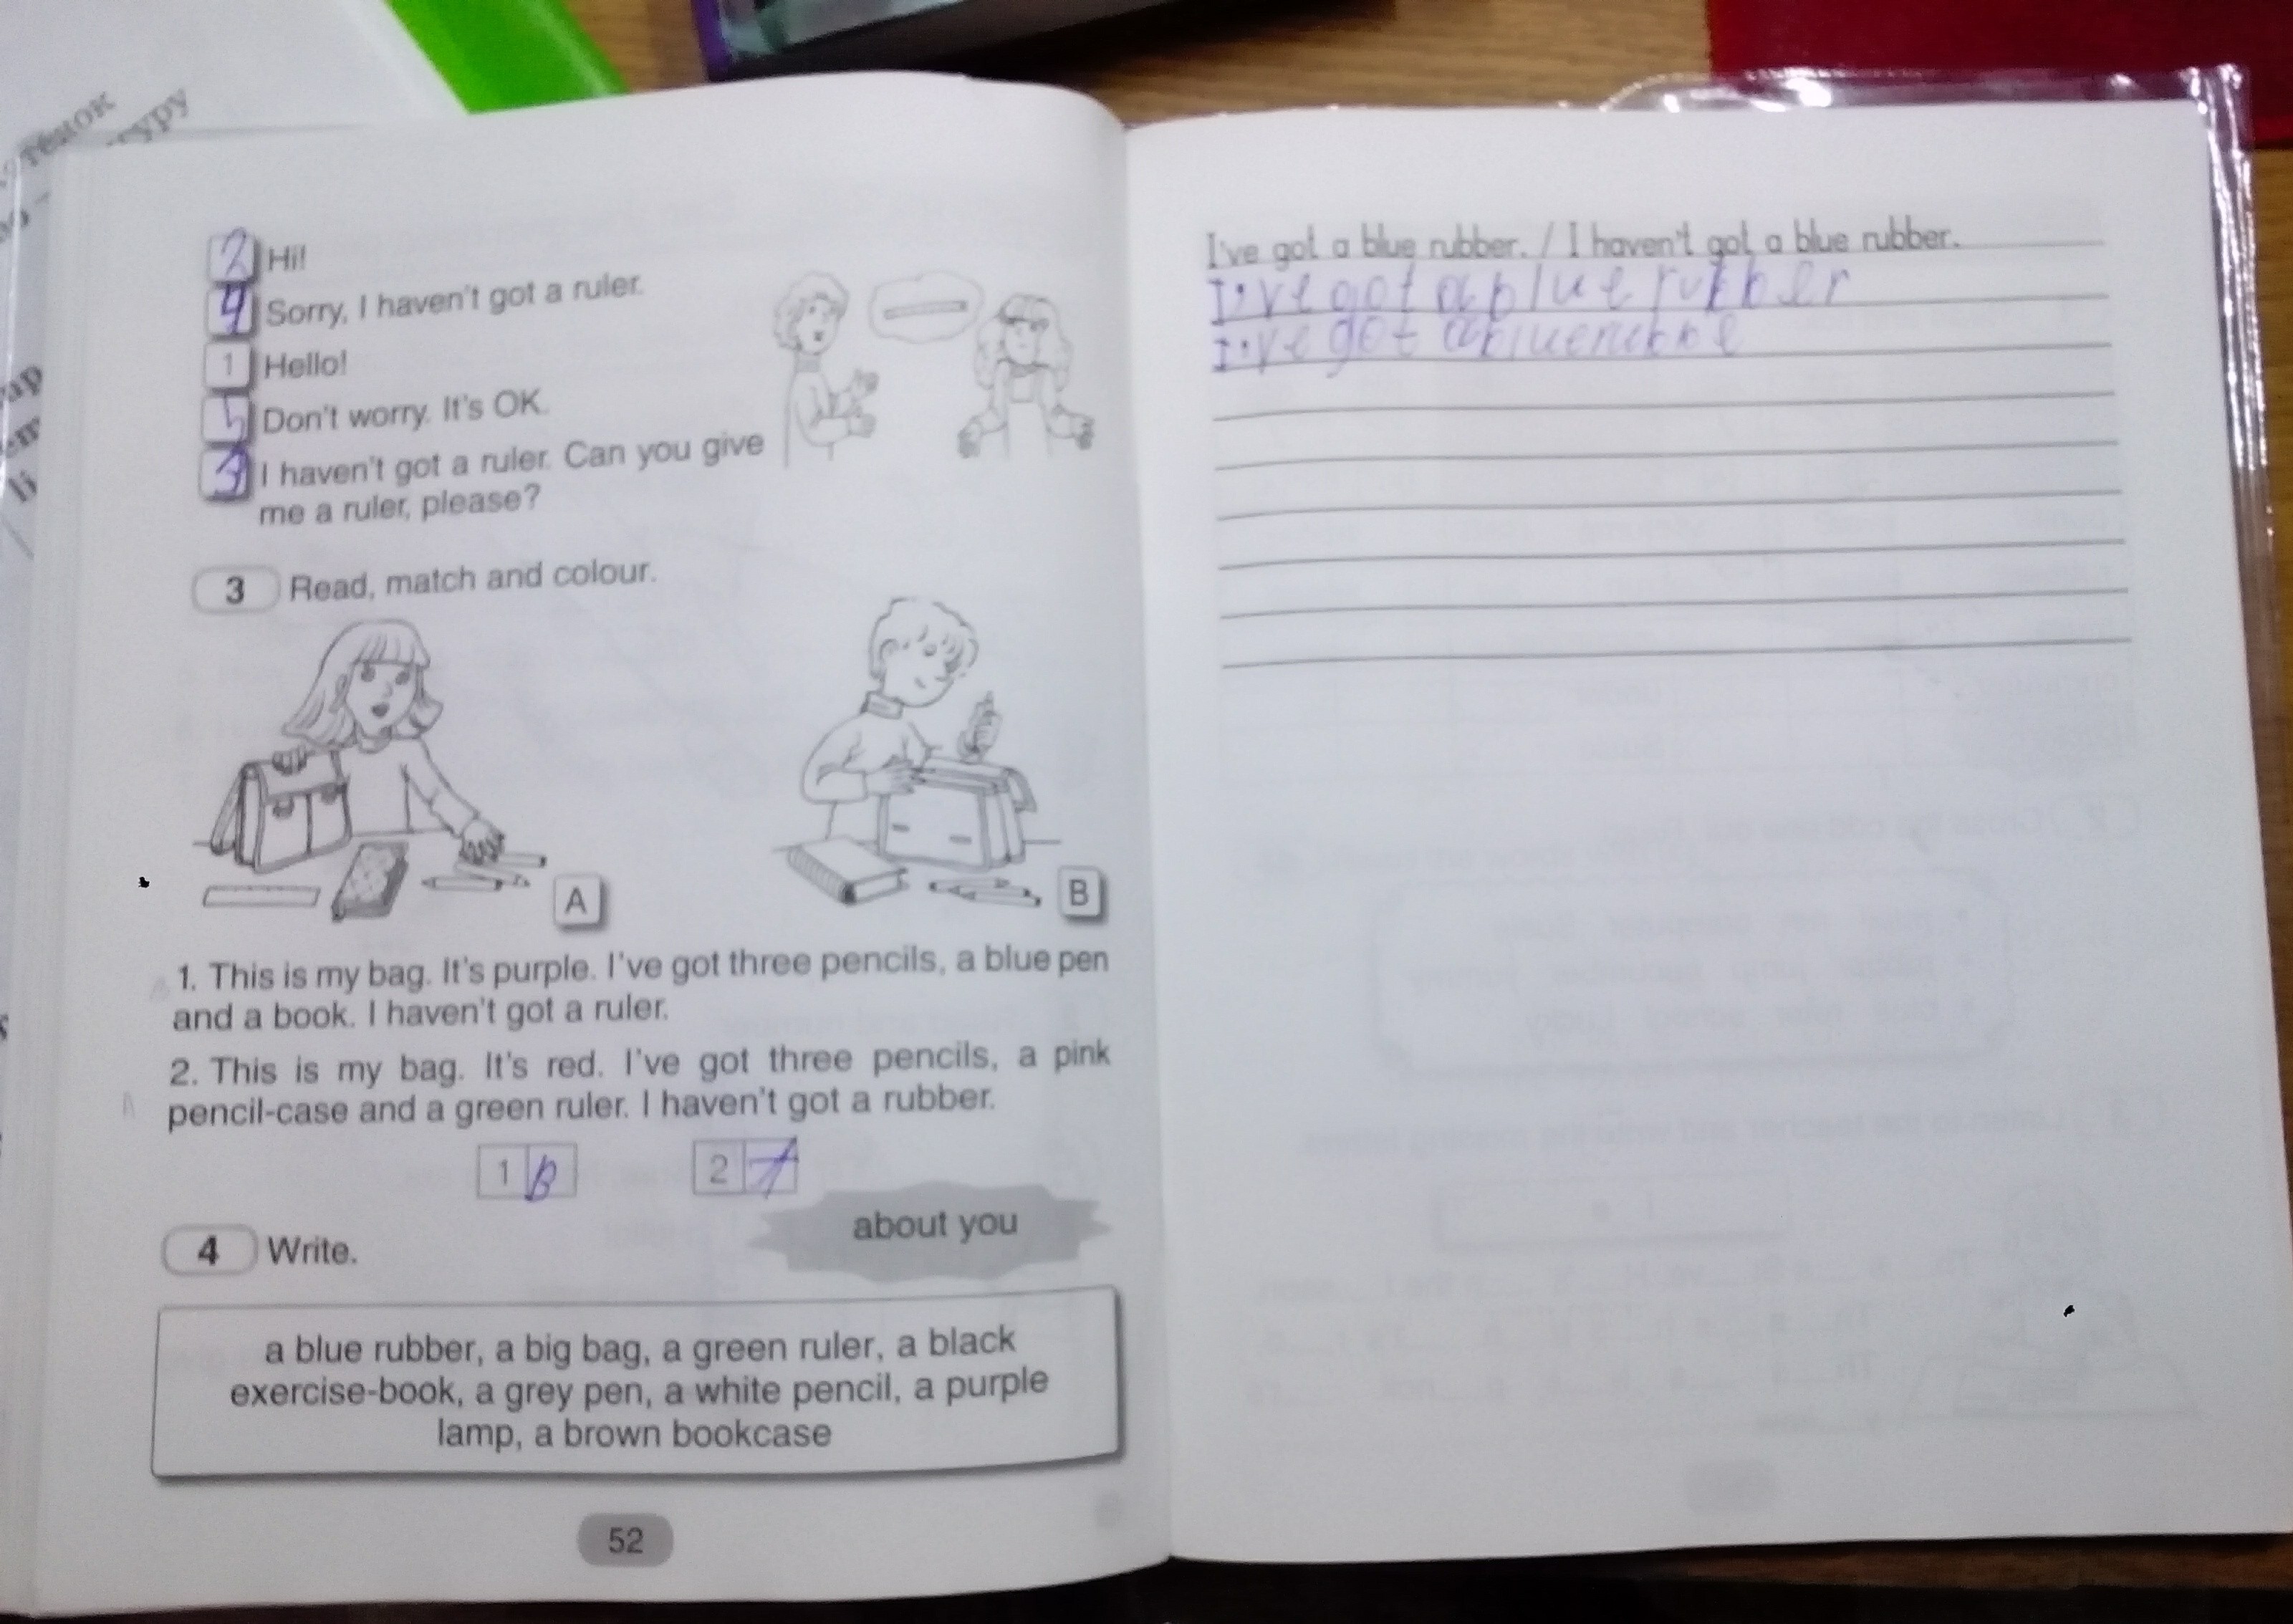 тёнок
туру
2 Hi!
4 Sorry, I haven't got a ruler.
1 Hello!
5 Don't worry. It's OK.
3 I haven't got a ruler. Can you give
me a ruler, please?
3 Read, match and colour.
A
B
1. This is my bag. It's purple. I've got three pencils, a blue pen
and a book. I haven't got a ruler.
2. This is my bag. It's red. I've got three pencils, a pink
pencil-case and a green ruler. I haven't got a rubber.
1 B 2 A
4 Write.
about you
a blue rubber, a big bag, a green ruler, a black
exercise-book, a grey pen, a white pencil, a purple
lamp, a brown bookcase
52
I've got a blue rubber. / I haven't got a blue rubber.
I've got a blue rubber
I've got a blue